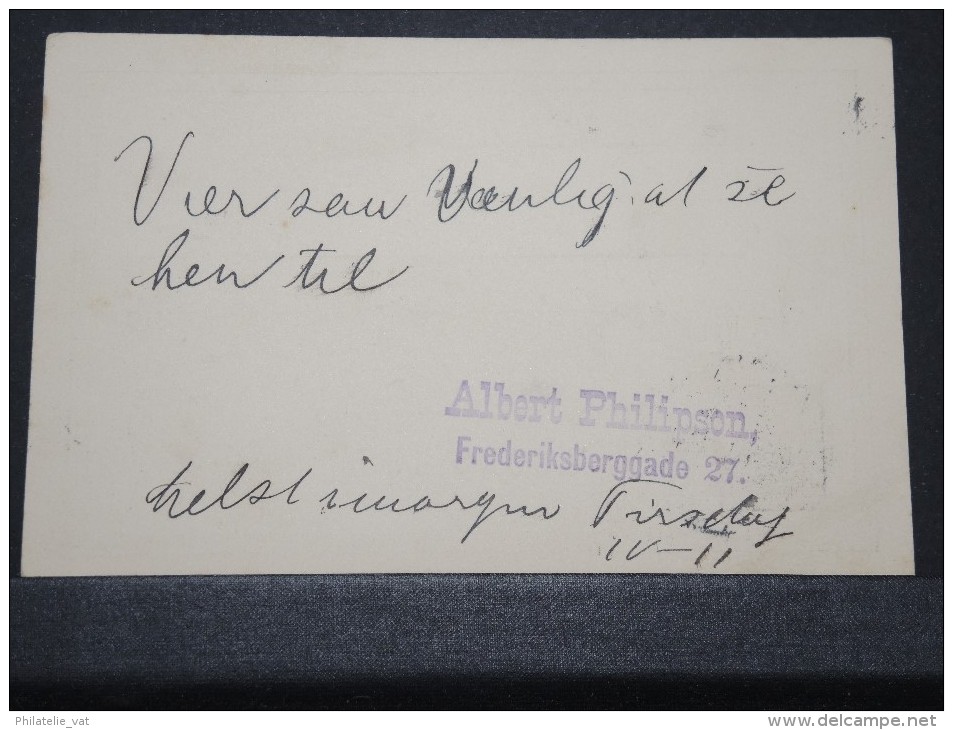 Vær saa Venlig at se
hen til
Albert Philipson,
Frederiksberggade 27.
helst imorgen Tirsdag
10-11
Philatelie_vat
www.delcampe.net